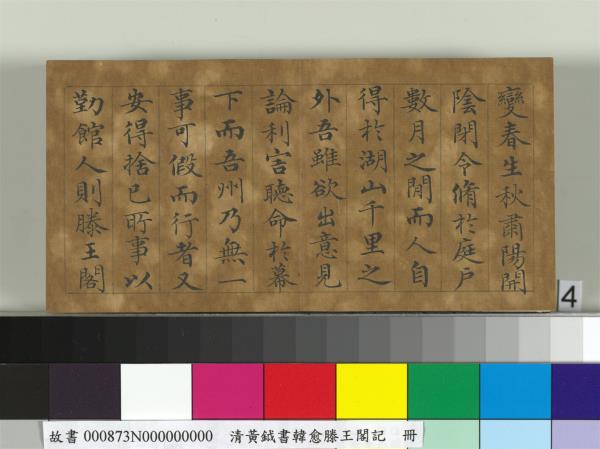 變春生秋肅陽開
陰閉令脩於庭戶
數月之間而人自
得於湖山千里之
外吾雖欲出意見
論利害聽命於幕
下而吾州乃無一
事可假而行者又
安得捨己所事以
勤館人則滕王閣
4
故書 000873N000000000 清黃鉞書韓愈滕王閣記 冊